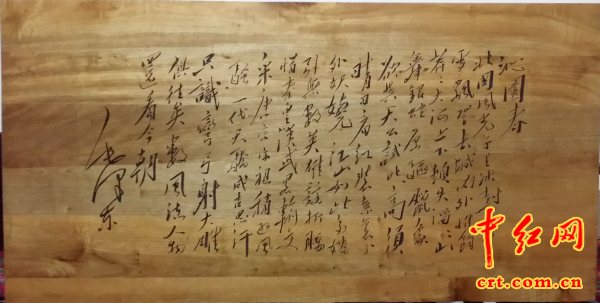 沁园春
北国风光千里冰封
雪飘望长城内外惟馀
莽莽大河上下顿失滔滔山
舞银蛇原驱腊象
欲与天公试比高须
晴日看红装素裹分
外妖娆江山如此多娇
引无数英雄竞折腰
惜秦皇汉武略输文
采唐宗宋祖稍逊风
骚一代天骄成吉思汗
只识弯弓射大雕
俱往矣数风流人物
还看今朝
毛泽东
中红网
crt.com.cn